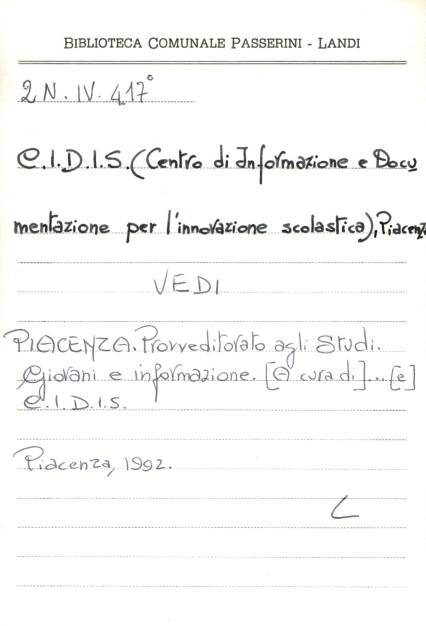 BIBLIOTECA COMUNALE PASSERINI - LANDI
2 N. IV. 417°
C.I.D.I.S. (Centro di Informazione e Docu
mentazione per l'innovazione scolastica), Piacenza
VEDI
PIACENZA. Provveditorato agli Studi.
Giovani e informazione. [A cura di]... [e]
C.I.D.I.S.
Piacenza, 1992.